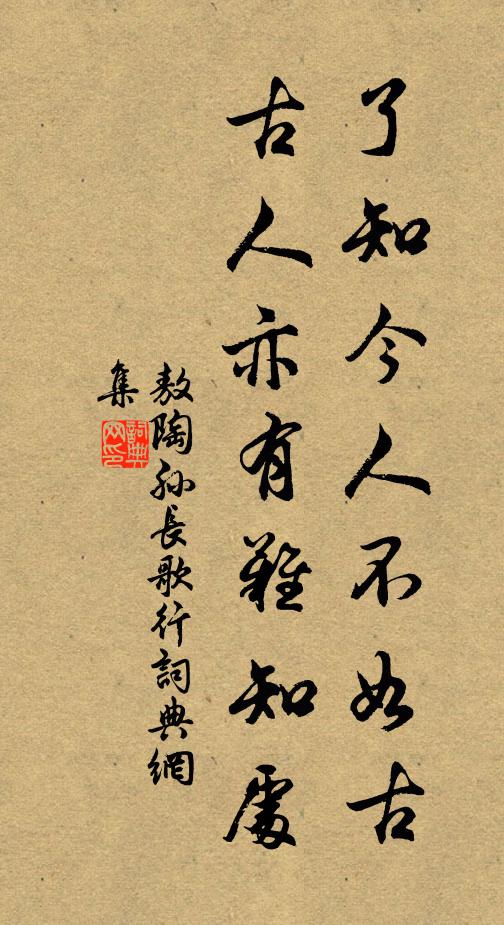 了知今人不如古
古人亦有難知處
敖陶孙長歌行詞典網
集
詞典網印